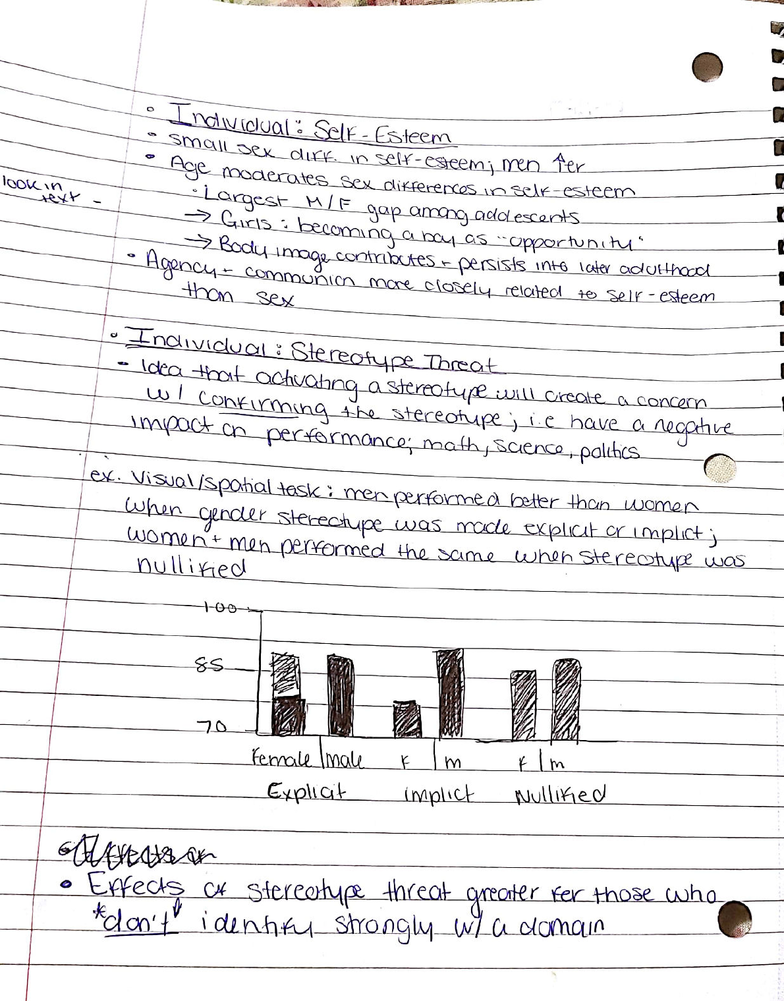 • Individual: Self-Esteem
• small sex diff. in self-esteem; men ↑er
• Age moderates sex differences in self-esteem
look in
text -
• Largest M/F gap among adolescents
→ Girls: becoming a boy as "opportunity"
→ Body image contributes - persists into later adulthood
• Agency - communion more closely related to self-esteem
than sex
• Individual: Stereotype Threat
- Idea that activating a stereotype will create a concern
w/ confirming the stereotype; i.e have a negative
impact on performance; math, science, politics
ex. Visual/spatial task: men performed better than women
when gender stereotype was made explicit or implict;
women + men performed the same when stereotype was
nullified
100
85
70
Female | male F | m F | m
Explicit Implict Nullified
• Effects of stereotype threat greater for those who
*don't* identify strongly w/ a domain